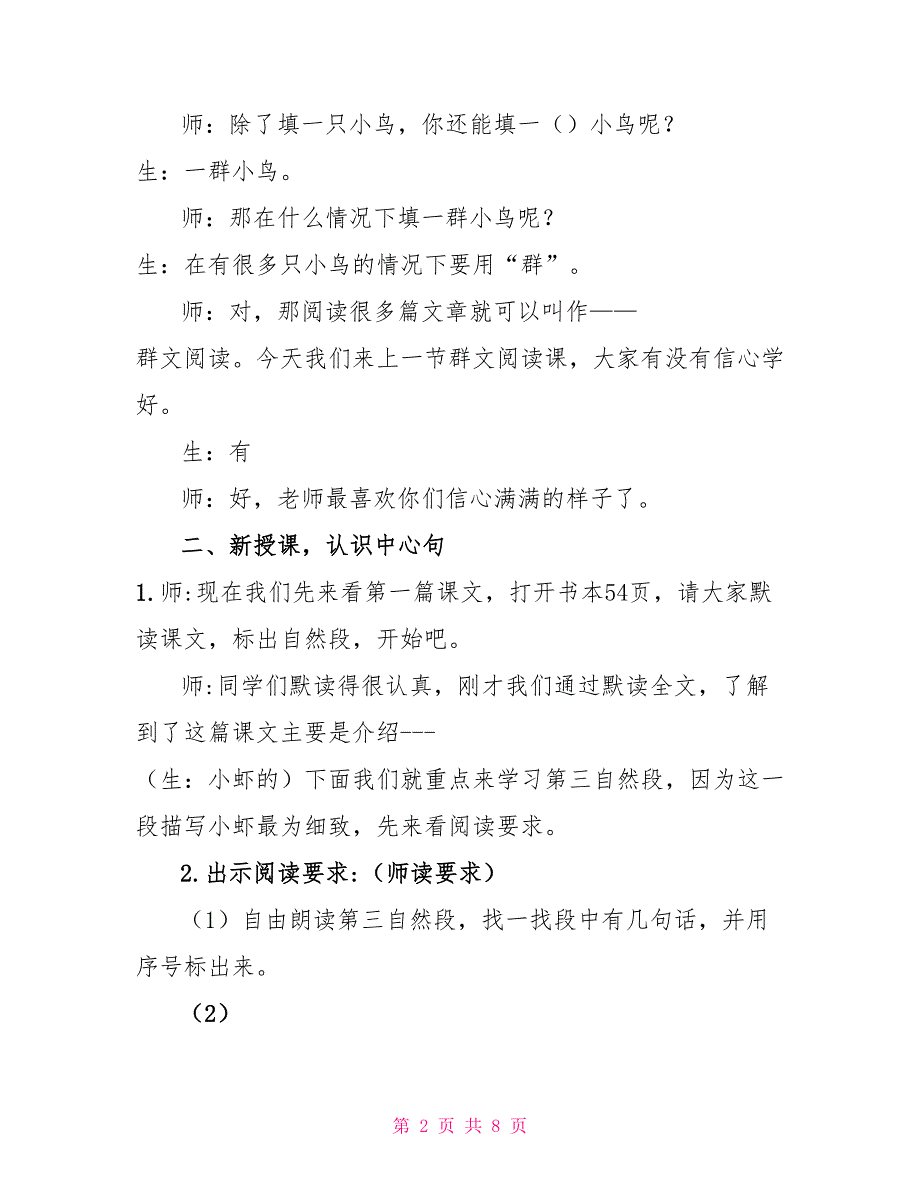 师：除了填一只小鸟，你还能填一（）小鸟呢？
生：一群小鸟。
师：那在什么情况下填一群小鸟呢？
生：在有很多只小鸟的情况下要用“群”。
师：对，那阅读很多篇文章就可以叫作——
群文阅读。今天我们来上一节群文阅读课，大家有没有信心学
好。
生：有
师：好，老师最喜欢你们信心满满的样子了。
二、新授课，认识中心句
1.师:现在我们先来看第一篇课文，打开书本54页，请大家默
读课文，标出自然段，开始吧。
师:同学们默读得很认真，刚才我们通过默读全文，了解
到了这篇课文主要是介绍---
（生：小虾的）下面我们就重点来学习第三自然段，因为这一
段描写小虾最为细致，先来看阅读要求。
2.出示阅读要求:（师读要求）
（1）自由朗读第三自然段，找一找段中有几句话，并用
序号标出来。
（2）
第 2 页 共 8 页